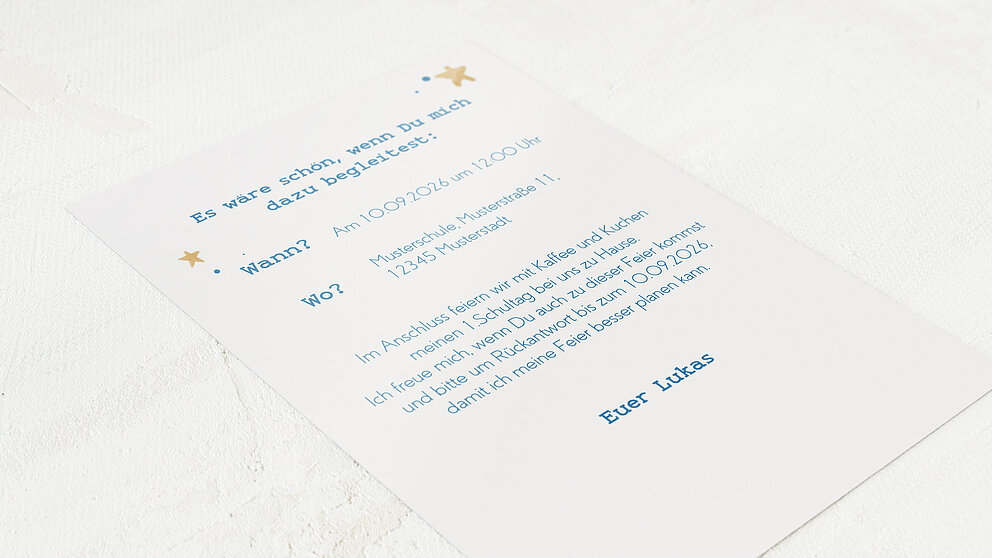 Es wäre schön, wenn Du mich
dazu begleitest:
Wann?
Am 10.09.2026 um 12:00 Uhr
Wo?
Musterschule, Musterstraße 11,
12345 Musterstadt
Im Anschluss feiern wir mit Kaffee und Kuchen
meinen 1.Schultag bei uns zu Hause.
Ich freue mich, wenn Du auch zu dieser Feier kommst
und bitte um Rückantwort bis zum 10.09.2026,
damit ich meine Feier besser planen kann.
Euer Lukas